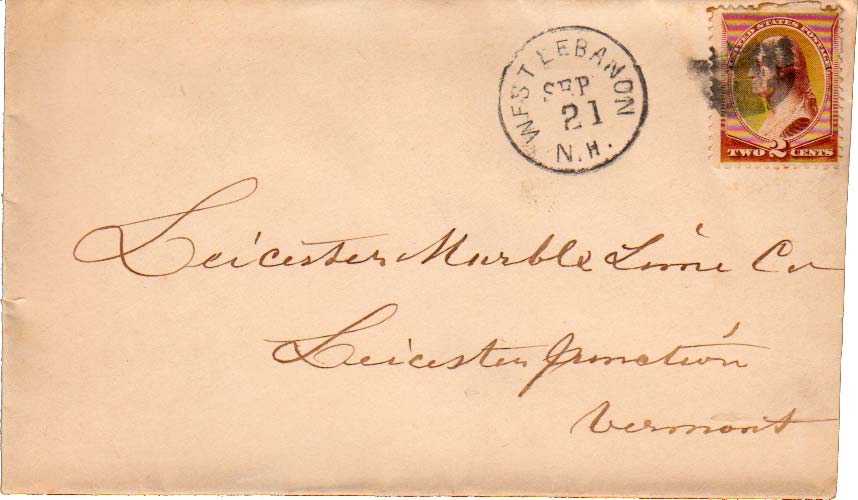 WEST LEBANON
SEP
21
N.H.
UNITED STATES POSTAGE
TWO 2 CENTS
Leicester Marble Lime Co
Leicester Junction
Vermont